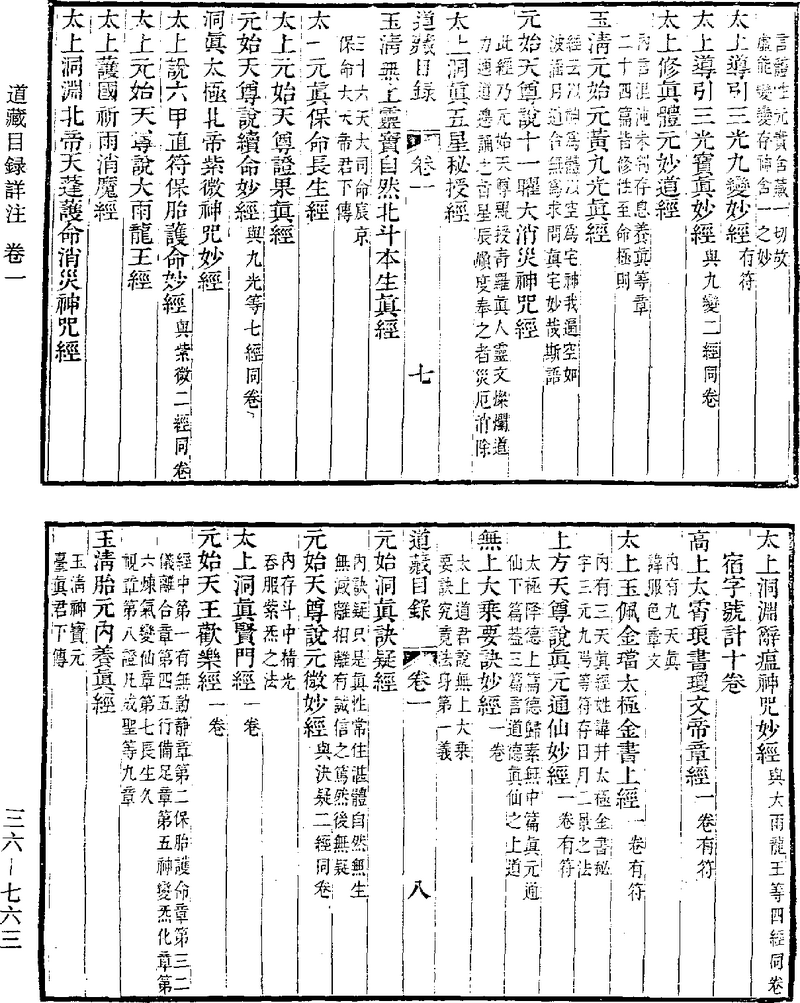 言護性元寶舍藏一切故
虛能變變存神舍一之妙
太上導引三光九變妙經有符
太上導引三光寶眞妙經與九變二經同卷
內言混沌未判存息養眞等章
二十四篇皆修性至命極則
太上修眞體元妙道經
玉淸元始元黃九光眞經
經云以神爲體以空爲宅神我逼空如
波涵月道合無爲求問眞宅妙哉斯語
元始天尊說十一曜大消災神咒經
此經乃元始天尊親授靑羅眞人靈文燦爛道
力速通邊誦之者星辰順度奉之者災厄消除
太上洞眞五星秘授經
道藏目録 卷一 七
玉淸無上靈寶自然北斗本生眞經
三十六天大司命宸京
保命大天帝君下傳
太一元眞保命長生經
太上元始天尊證果眞經
元始天尊說續命妙經與九光等七經同卷
洞眞太極北帝紫微神咒妙經
太上說六甲直符保胎護命妙經與紫微二經同卷
太上元始天尊說大雨龍王經
太上護國祈雨消魔經
太上洞淵北帝天蓬護命消災神咒經
太上洞淵辭瘟神咒妙經與大雨龍王等四經同卷
宿字號計十卷
高上太霄琅書瓊文帝章經一卷有符
內有九天眞
諱服色章文
太上玉佩金璫太極金書上經一卷有符
內有三天眞經姓諱幷太極金書秘
字三元九陽等符存日月二景之法
上方天尊說眞元通仙妙經一卷有符
太極降德上篇德歸素無中篇眞元通
仙下篇蓋三篇言道德眞仙之上道
無上大乘要訣妙經一卷
太上道君說無上大乘
要訣究竟法身第一義
道藏目録 卷一 八
元始洞眞訣疑經
內訣疑只是眞性常住湛體自然無生
無滅離相離有誠信之篤然後無疑
元始天尊說元微妙經與決疑二經同卷
內存斗中精光
吞服紫炁之法
太上洞眞賢門經一卷
元始天王歡樂經一卷
經中第一有無動靜章第二保胎護命章第三二
儀離合章第四五行備足章第五神變炁化章第
六煉氣變仙章第七長生久
視章第八證凡成聖等九章
玉淸胎元內養眞經
玉淸神寶元
臺眞君下傳
道藏目録詳注 卷一
三六—七六三